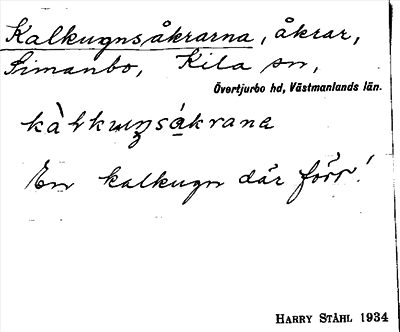 Kalkugnsåkrarna, åkrar,
Simanbo, Kila sn,
Övertjurbo hd, Västmanlands län.
En kalkugn där förr!
HARRY STÅHL 1934